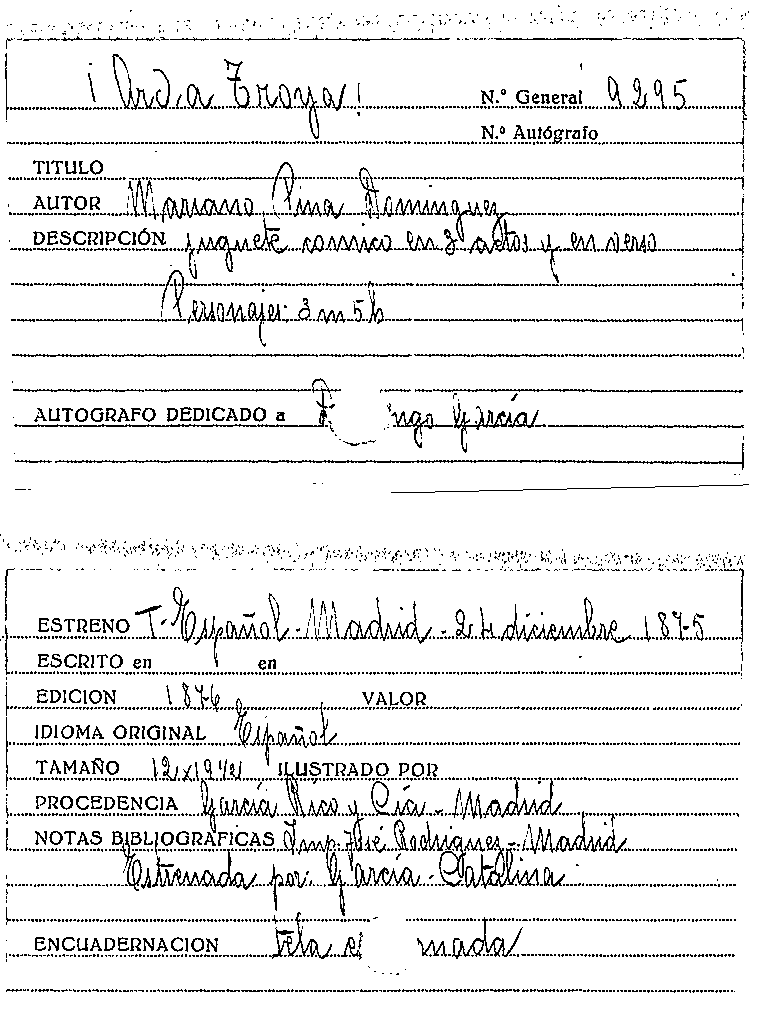 ¡Arda Troya!
N.º General 9295
N.º Autógrafo
TITULO
AUTOR Mariano Pina Dominguez
DESCRIPCIÓN juguete comico en 3 actos y en verso
Personajes: 3 m 5 h
AUTOGRAFO DEDICADO a ngo García
ESTRENO T. Español - Madrid - 24 diciembre 1875
ESCRITO en en
EDICION 1876 VALOR
IDIOMA ORIGINAL Español
TAMAÑO 12x19½ ILUSTRADO POR
PROCEDENCIA García Rico y Cía - Madrid
NOTAS BIBLIOGRAFICAS Imp. José Rodriguez - Madrid
Estrenada por: García - Catalina
ENCUADERNACION tela e mada